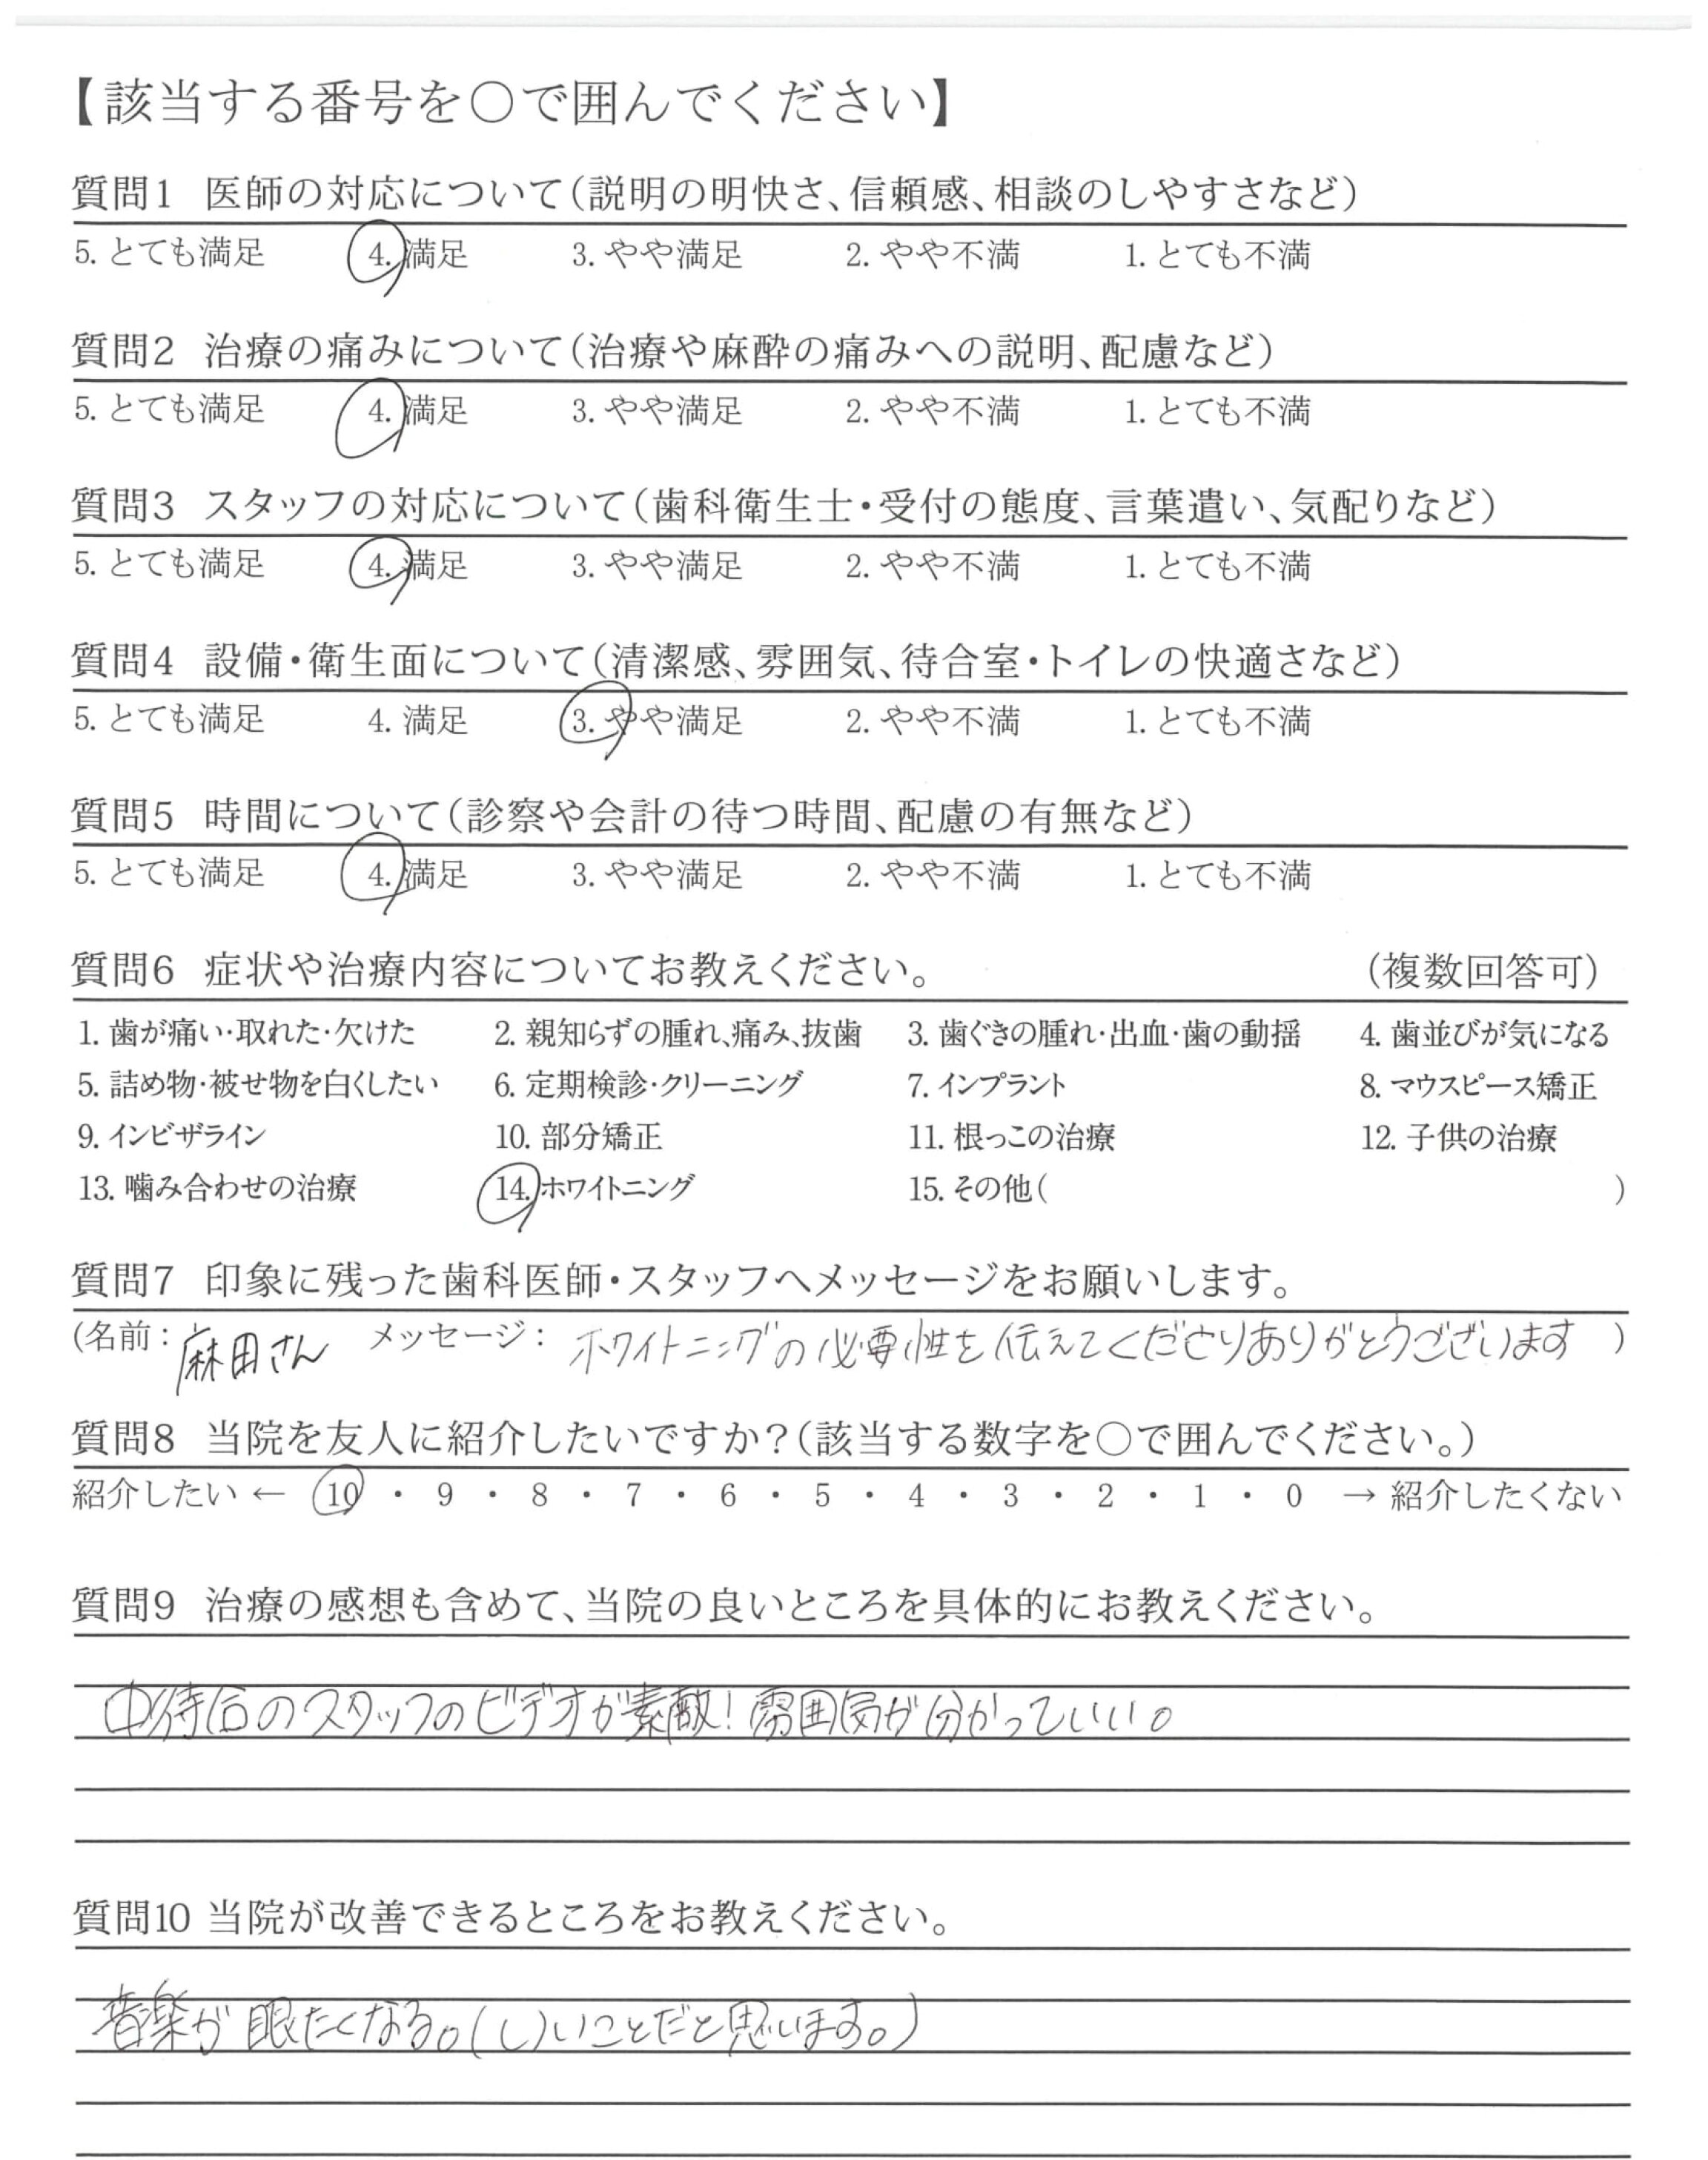 【該当する番号を○で囲んでください】
質問1 医師の対応について(説明の明快さ、信頼感、相談のしやすさなど)
5. とても満足 4. 満足 3. やや満足 2. やや不満 1. とても不満
質問2 治療の痛みについて(治療や麻酔の痛みへの説明、配慮など)
5. とても満足 4. 満足 3. やや満足 2. やや不満 1. とても不満
質問3 スタッフの対応について(歯科衛生士・受付の態度、言葉遣い、気配りなど)
5. とても満足 4. 満足 3. やや満足 2. やや不満 1. とても不満
質問4 設備・衛生面について(清潔感、雰囲気、待合室・トイレの快適さなど)
5. とても満足 4. 満足 3. やや満足 2. やや不満 1. とても不満
質問5 時間について(診察や会計の待つ時間、配慮の有無など)
5. とても満足 4. 満足 3. やや満足 2. やや不満 1. とても不満
質問6 症状や治療内容についてお教えください。 (複数回答可)
1. 歯が痛い・取れた・欠けた 2. 親知らずの腫れ、痛み、抜歯 3. 歯ぐきの腫れ・出血・歯の動揺 4. 歯並びが気になる
5. 詰め物・被せ物を白くしたい 6. 定期検診・クリーニング 7. インプラント 8. マウスピース矯正
9. インビザライン 10. 部分矯正 11. 根っこの治療 12. 子供の治療
13. 噛み合わせの治療 14. ホワイトニング 15. その他( )
質問7 印象に残った歯科医師・スタッフへメッセージをお願いします。
(名前: 麻田さん メッセージ: ホワイトニングの必要性を伝えてくださりありがとうございます )
質問8 当院を友人に紹介したいですか?(該当する数字を○で囲んでください。)
紹介したい ← 10 ・ 9 ・ 8 ・ 7 ・ 6 ・ 5 ・ 4 ・ 3 ・ 2 ・ 1 ・ 0 → 紹介したくない
質問9 治療の感想も含めて、当院の良いところを具体的にお教えください。
のスタッフのビデオが素敵!雰囲気が分かっていい。
質問10 当院が改善できるところをお教えください。
音楽が眠たくなる。(いいことだと思います。)